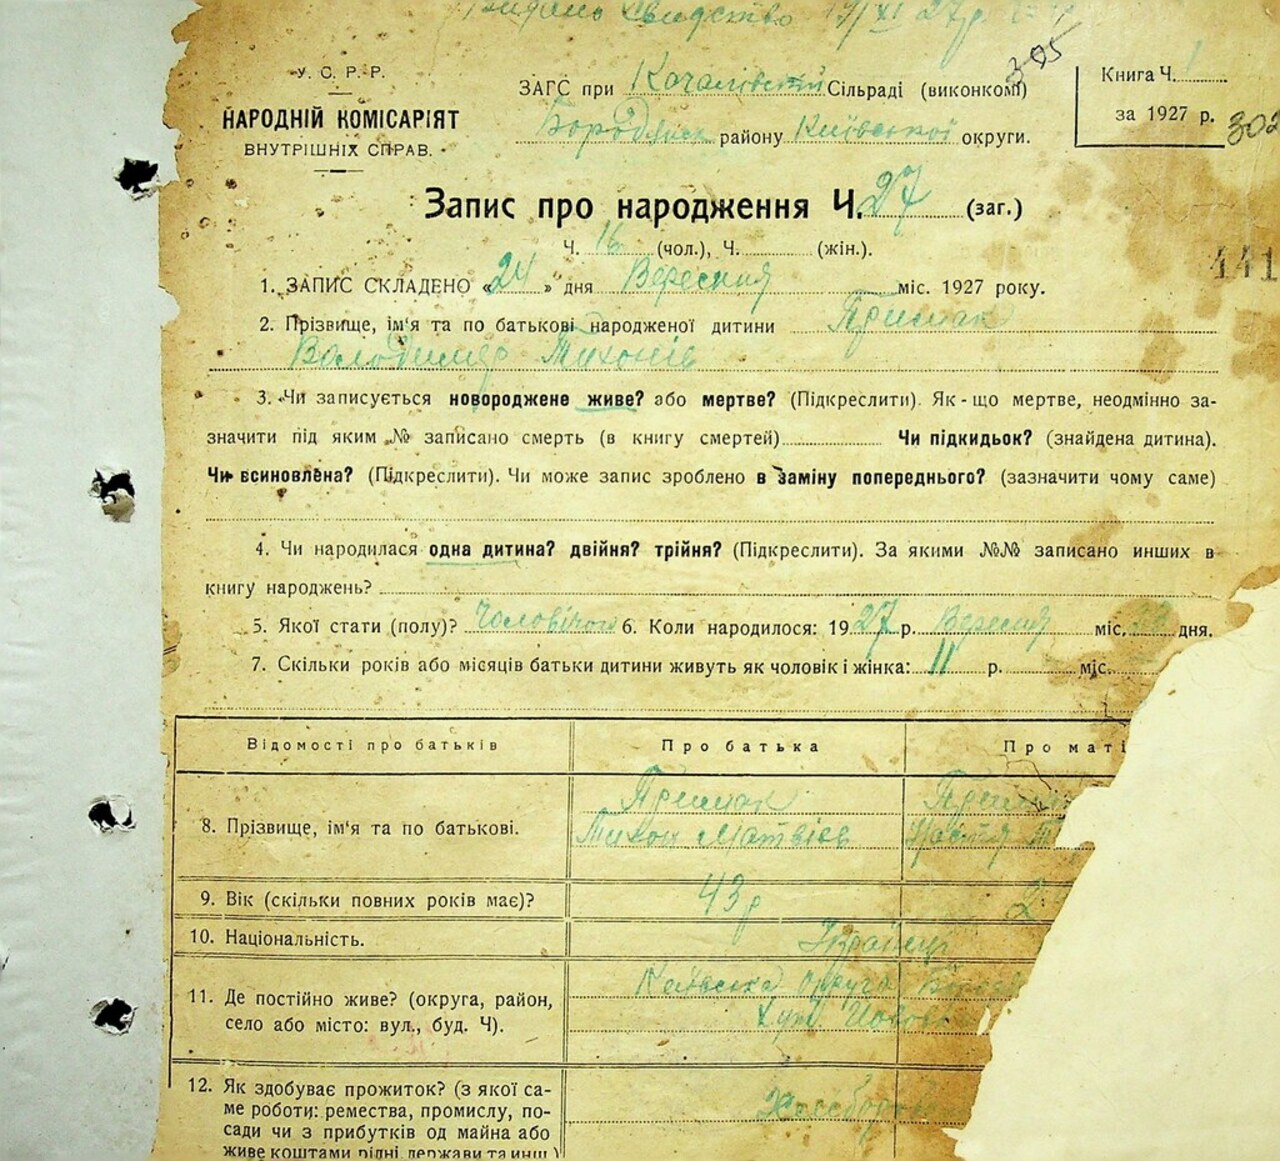 Видано свидетство 19/XI 27р
305
У. С. Р. Р.
НАРОДНІЙ КОМІСАРІЯТ
ВНУТРІШНІХ СПРАВ.
ЗАГС при Качалівській Сільраді (виконкомі)
Бородянск району Київської округи.
Книга Ч. 1
за 1927 р.
302
Запис про народження Ч. 27 (заг.)
Ч. 16 (чол.), Ч. (жін.).
441
1. ЗАПИС СКЛАДЕНО «24» дня Вересня міс. 1927 року.
2. Прізвище, ім'я та по батькові народженої дитини Примак
Володимер Тихонів
3. Чи записується новороджене живе? або мертве? (Підкреслити). Як-що мертве, неодмінно за-
значити під яким № записано смерть (в книгу смертей) Чи підкидьок? (знайдена дитина).
Чи всиновлена? (Підкреслити). Чи може запис зроблено в заміну попереднього? (зазначити чому саме)
4. Чи народилася одна дитина? двійня? трійня? (Підкреслити). За якими №№ записано инших в
книгу народжень?
5. Якої стати (полу)? Чоловічої 6. Коли народилося: 1927 р. Вересня міс. дня.
7. Скільки років або місяців батьки дитини живуть як чоловік і жінка: 11 р. міс.
Відомості про батьків Про батька Про маті
8. Прізвище, ім'я та по батькові. Примак
Тихон Матвіїв
Настя
9. Вік (скільки повних років має)? 43 р 2
10. Національність. Українці
11. Де постійно живе? (округа, район,
село або місто: вул., буд. Ч). Київська округа
Хут
12. Як здобуває прожиток? (з якої са-
ме роботи: ремества, промислу, по-
сади чи з прибутків од майна або
живе коштами рідні, держави та инш.)
Хлебороб